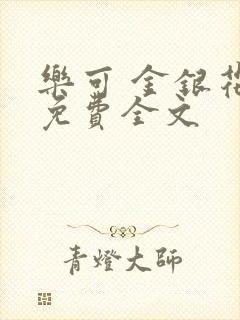 樂可 金銀花
免費全文
青燈大師